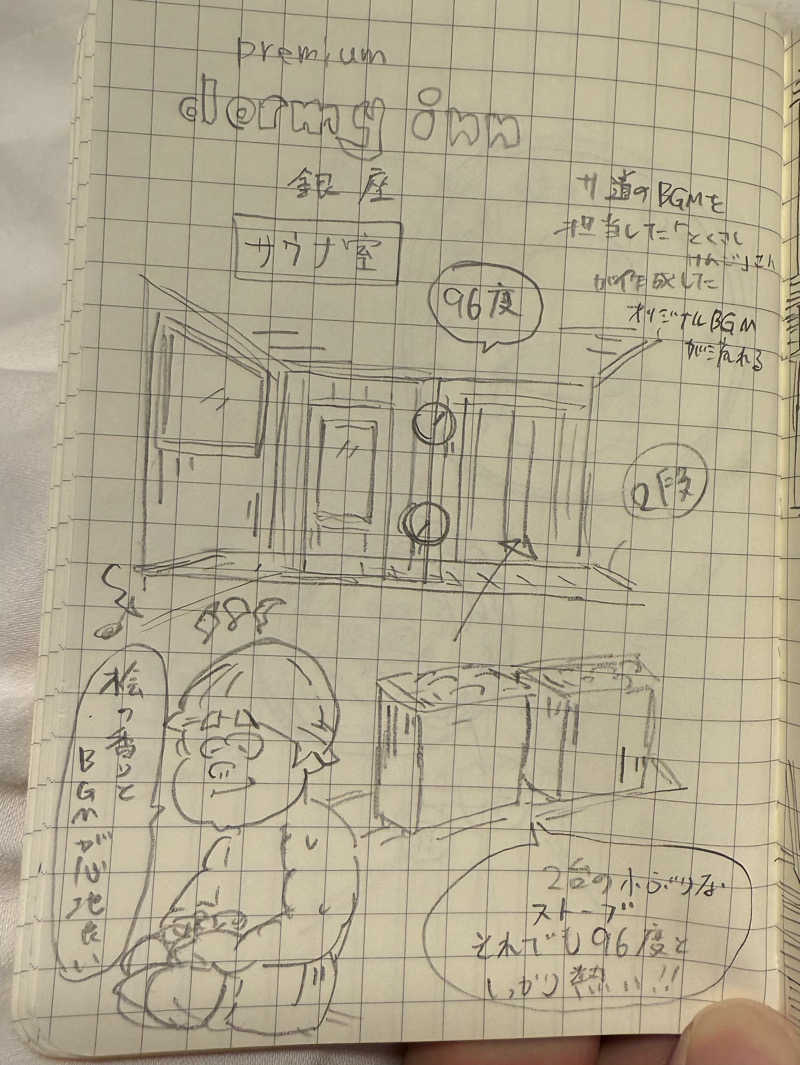 premium
dormy inn
銀座
サウナ室
サ道のBGMを
担当した「とくさし
けんごさん
が作成した
オリジナルBGM
が流れる
96度
2段
桧の香りと
BGMが心地良い
2台の小ぶりな
ストーブ
それでも96度と
しっかり熱い!!